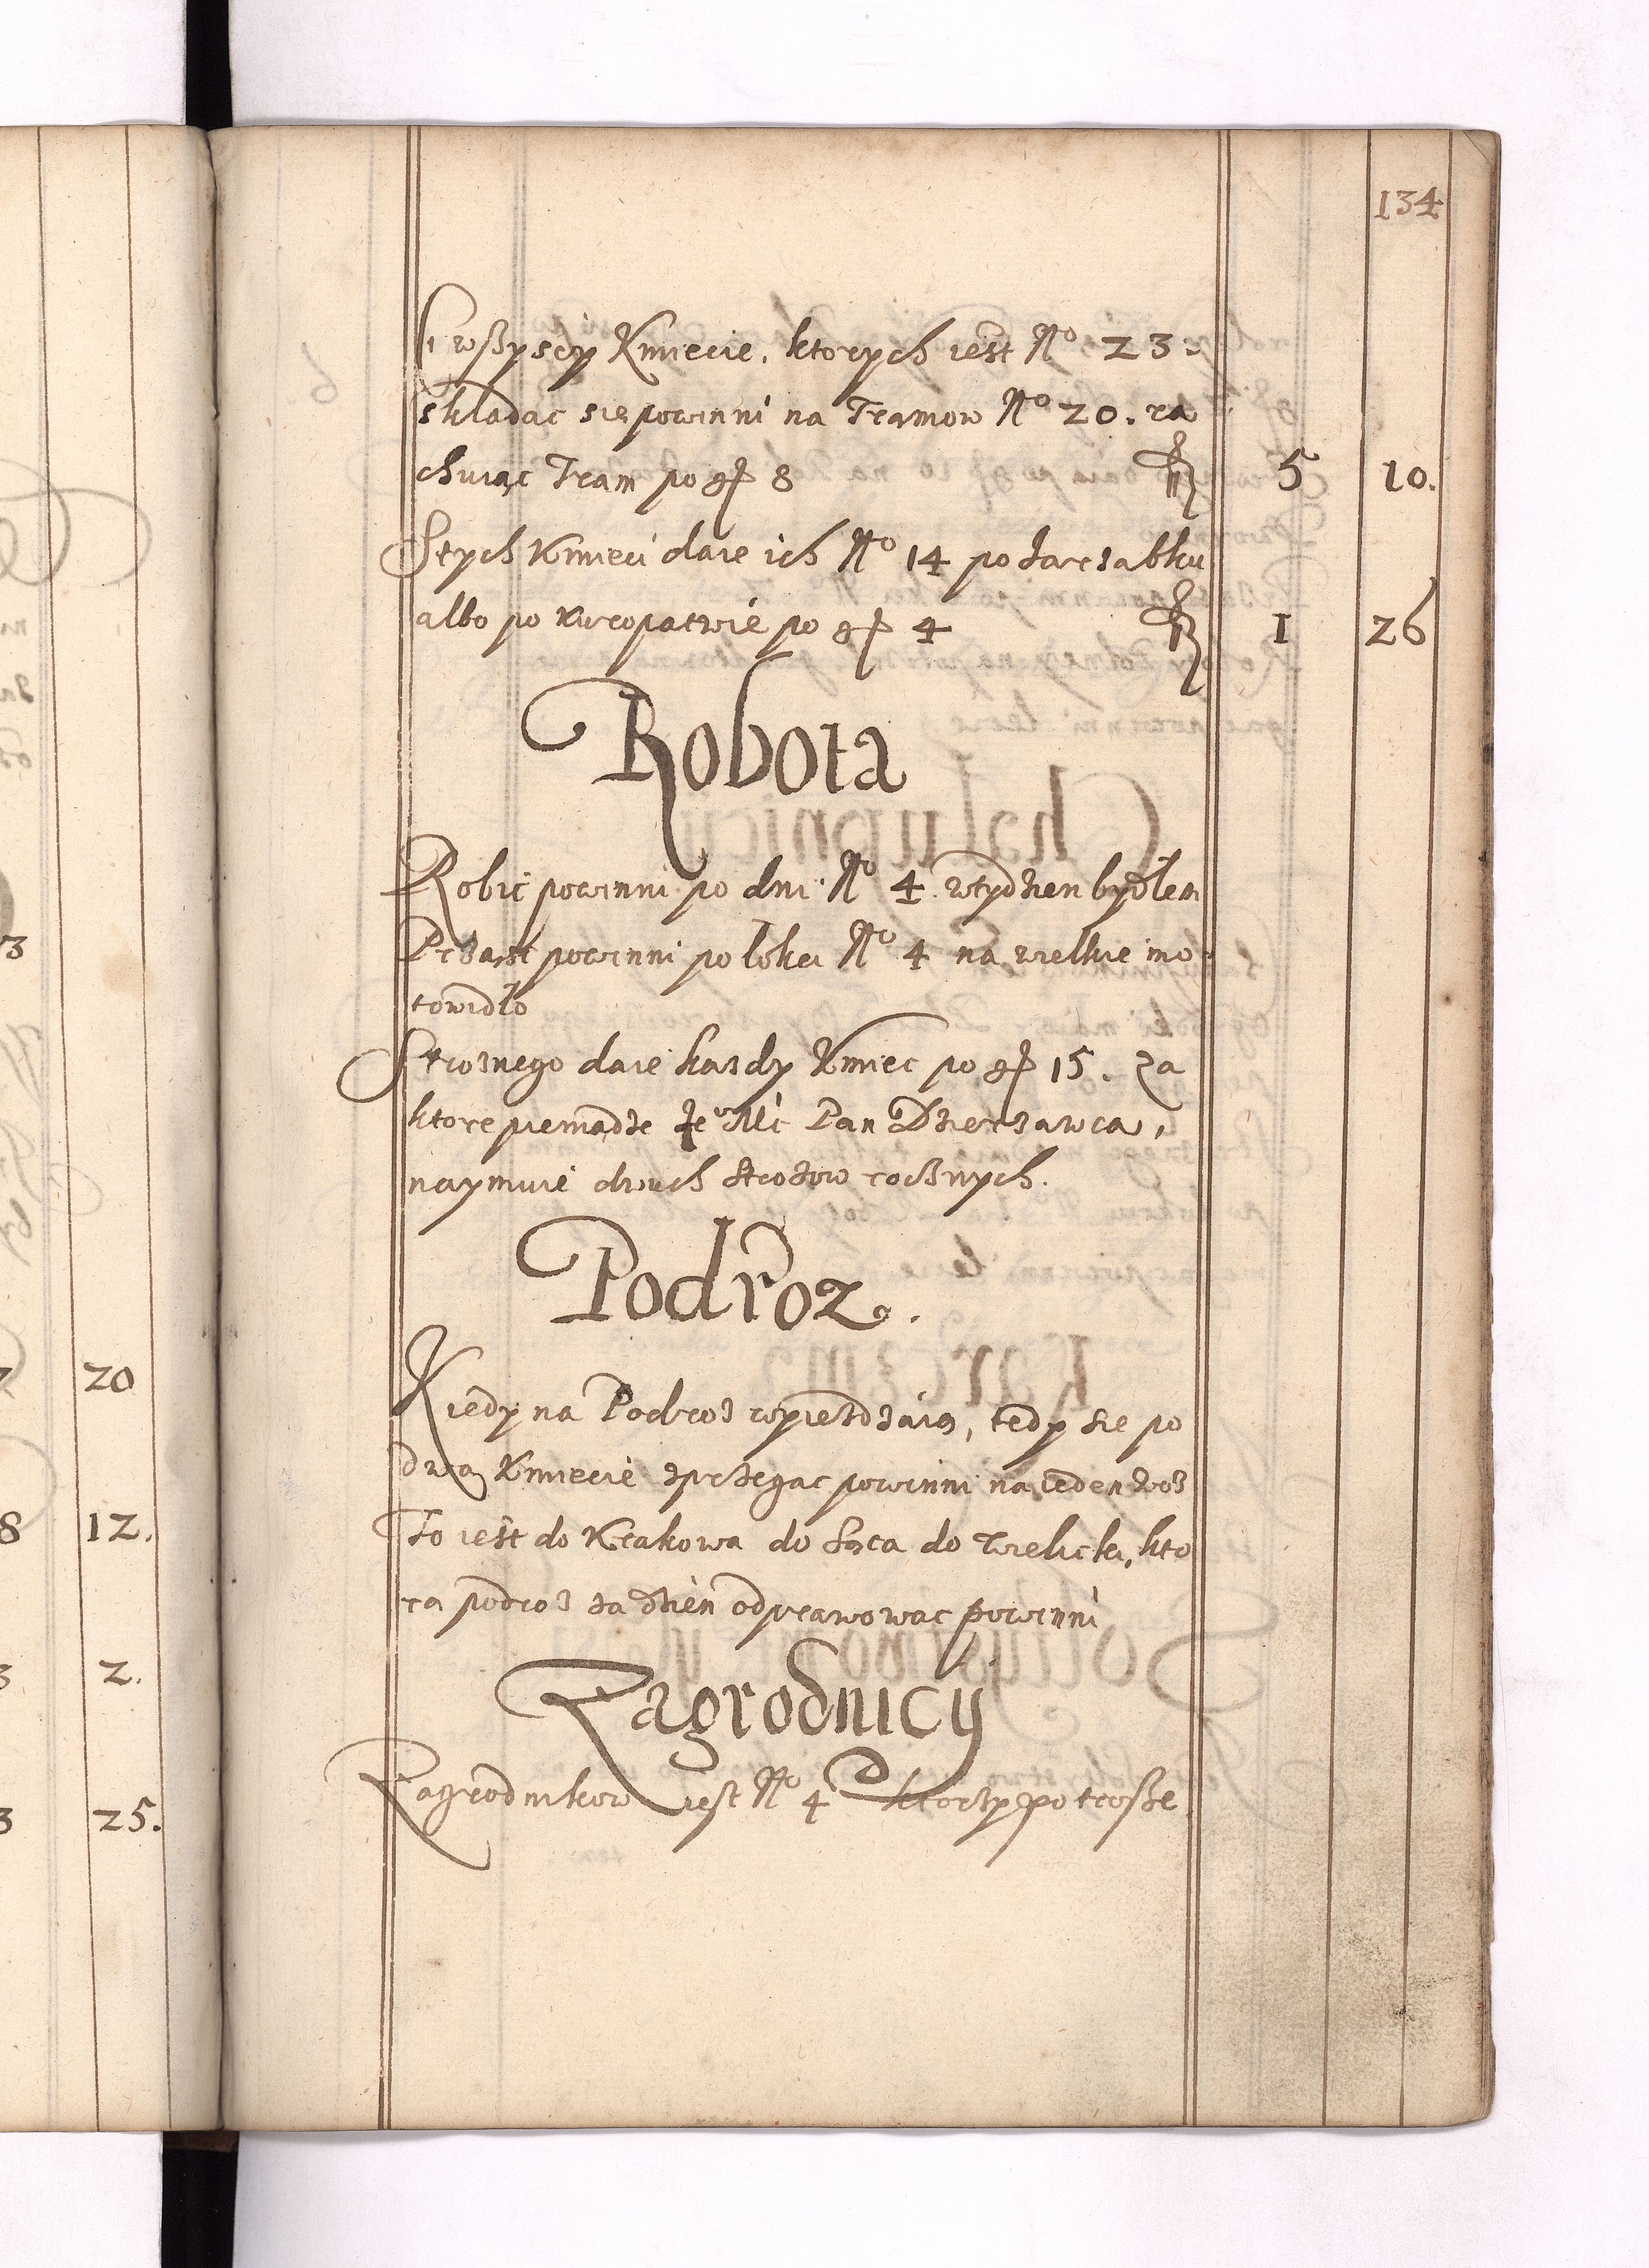 134
Ci wßyscy Kmiecie, ktorych iest No 23.
składac sie powinni na Tramow No 20. ra
chuiąc Tram po gr 8 fl 5 10.
S tych Kmieci daie ich No 14 po Jarzabku
albo po Kuropatwie po gr 4 fl 1 26
Robota
Robić powinni po dni No 4 w tydzien bydłem
Prząść powinni po łokci No 4 na wielkie mo-
towidło
Stroznego daie kazdy Kmiec po gr 15. za
ktore pieniądze Je Mć Pan Dzierzawca,
naymuie dwuch strozow rocznych.
Podroz.
Kiedy na Podroz wyiezdzaią, tedy sie po
dwa Kmiecie zprzegac powinni na ieden woz
To iest do Krakowa do Sącza do Wieliczki, kto
ra podroz za dzien odprawowac powinni
Zagrodnicy
Zagrodnikow iest No 4 ktorzy po troße
3
20
8 12.
3 2.
3 25.